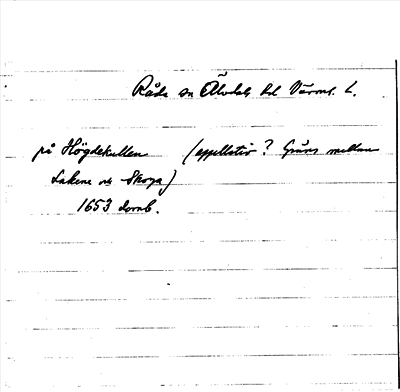 Råda sn Älvdals hd Värml. L.
på Högdekullen (appellativ? Gräns mellan
Lakene och Skoga)
1653 domb.